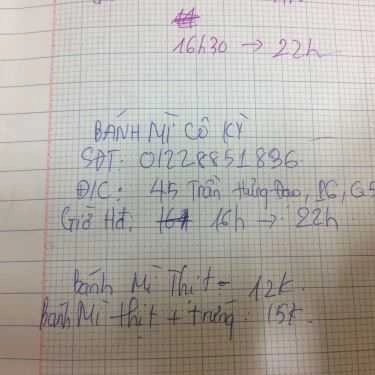 16h30 → 22h
BÁNH MÌ CÔ KỲ
SĐT: 01228851836
Đ/C: 45 Trần Hưng Đạo, P6, Q5
Giờ Hđ: 16h → 22h
Bánh Mì Thịt - 12k.
Bánh Mì thịt + trứng: 15k.